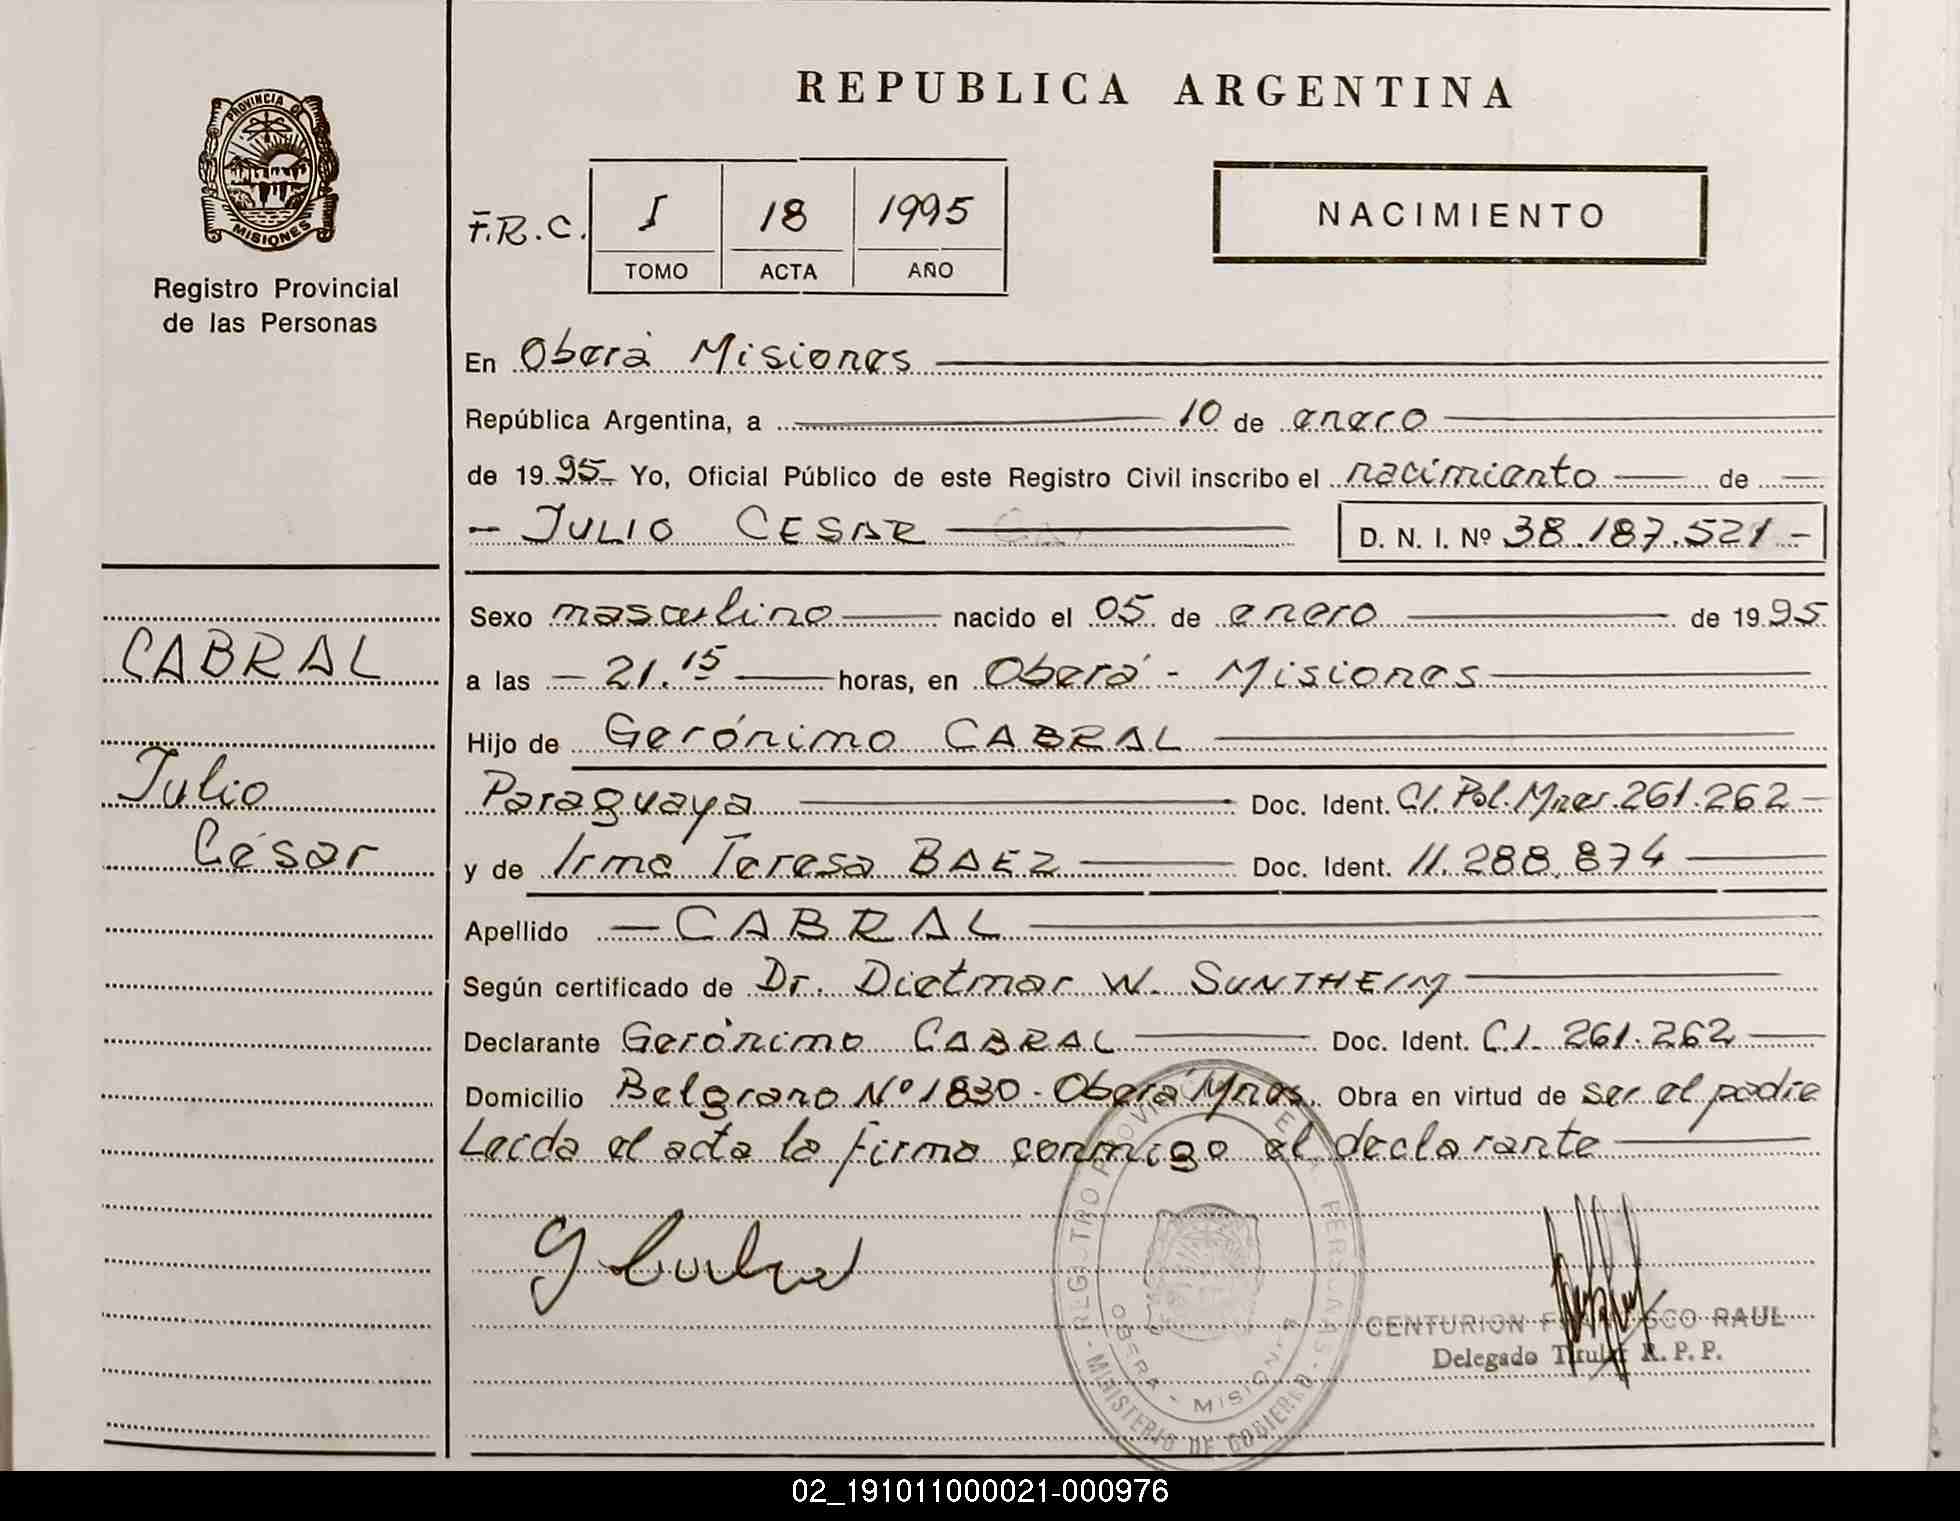 REPUBLICA ARGENTINA
PROVINCIA DE
MISIONES
Registro Provincial
de las Personas
F.R.C. I 18 1995
TOMO ACTA AÑO
NACIMIENTO
En Oberá Misiones
República Argentina, a 10 de enero
de 1995- Yo, Oficial Público de este Registro Civil inscribo el nacimiento de
- JULIO CESAR D. N. I. Nº 38.187.521-
Sexo masculino nacido el 05 de enero de 1995
CABRAL
a las - 21.15 horas, en Oberá - Misiones
Hijo de Gerónimo CABRAL
Julio
Paraguaya Doc. Ident. C/. Pol. Mnes. 261.262-
César
y de Irma Teresa BAEZ Doc. Ident. 11.288.874
Apellido - CABRAL
Según certificado de Dr. Dietmar W. SUNTHEIM
Declarante Gerónimo CABRAL Doc. Ident. C.I. 261.262
Domicilio Belgrano Nº 1830 - Oberá Mnes. Obra en virtud de ser el padre
Leída el acta la firma conmigo el declarante
REGISTRO PROVINCIAL DE LAS PERSONAS
OBERA - MISIONES
MINISTERIO DE GOBIERNO
CENTURION FRANCISCO RAUL
Delegado Titular R. P. P.
02_191011000021-000976